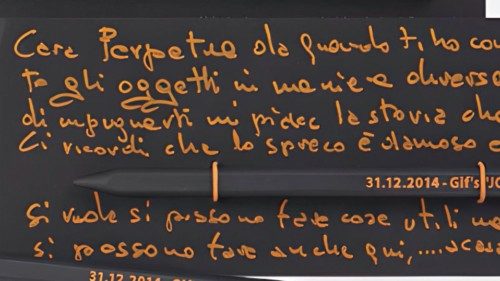 Cara Perpetua da quando ti ho con
te gli oggetti in maniera diversa
di impugnarti mi piace la storia che
Ci ricordi che lo spreco è dannoso e
31.12.2014 - Gif's "JO
si vuole si possono fare cose utili
si possono fare anche qui,....
31.12.2014